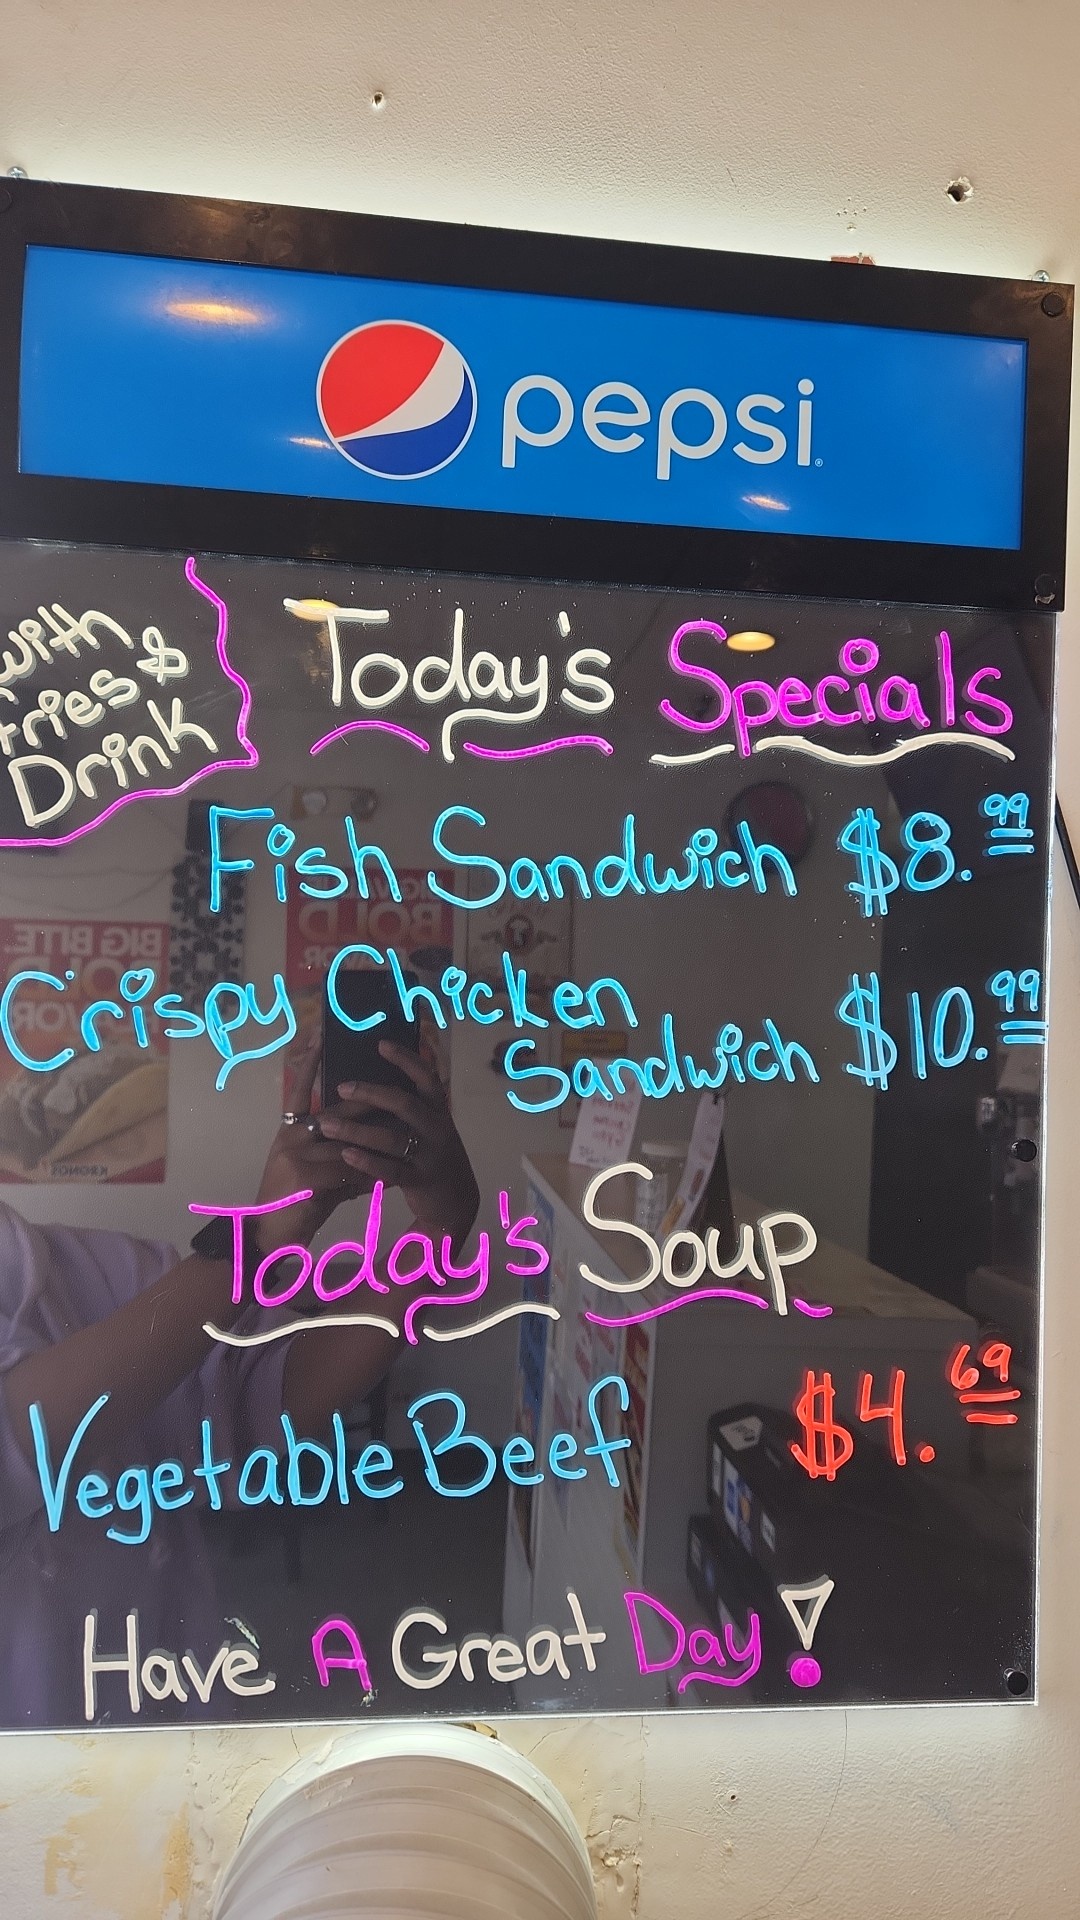 pepsi
with
fries &
Drink
Today's Specials
Fish Sandwich $8.99
Crispy Chicken
Sandwich $10.99
Today's Soup
Vegetable Beef $4.69
Have A Great Day!
BIG BITE.
BOLD
FLAVOR.
BOLD
KRONOS